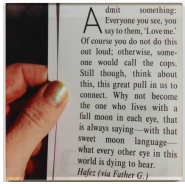 Admit something:
Everyone you see, you
say to them, 'Love me.'
Of course you do not do this
out loud; otherwise, some-
one would call the cops.
Still though, think about
this, this great pull in us to
connect. Why not become
the one who lives with a
full moon in each eye, that
is always saying—with that
sweet moon language—
what every other eye in this
world is dying to hear.
Hafez (via Father G.)